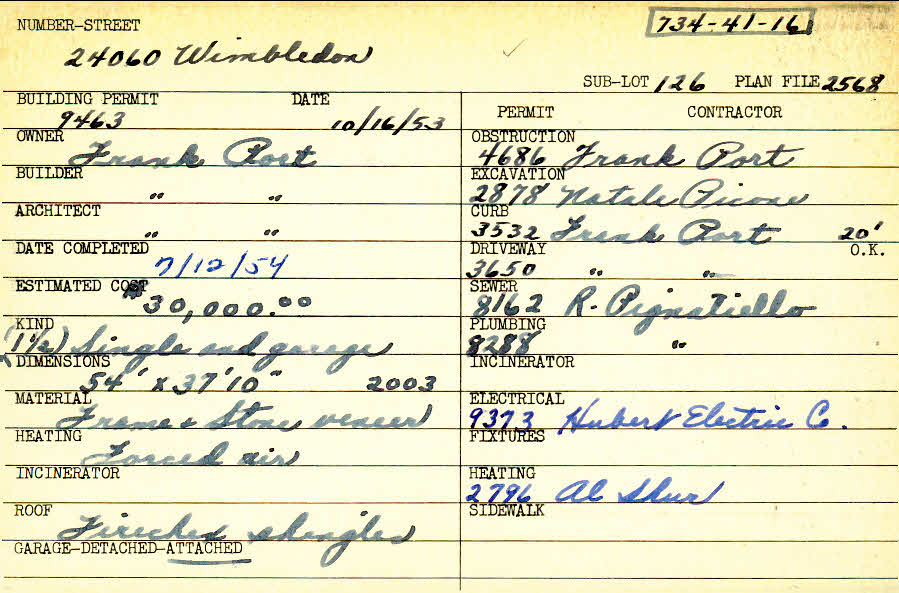 NUMBER-STREET
734-41-16
24060 Wimbledon
SUB-LOT 126 PLAN FILE 2568
BUILDING PERMIT DATE
9463 10/16/53
OWNER
Frank Port
BUILDER
" "
ARCHITECT
" "
DATE COMPLETED
7/12/54
ESTIMATED COST
$30,000.00
KIND
(1 1/2) Single and garage
DIMENSIONS
54' x 37'10" 2003
MATERIAL
Frame + Stone veneer
HEATING
Forced air
INCINERATOR
ROOF
Firechex shingles
GARAGE-DETACHED-ATTACHED
PERMIT CONTRACTOR
OBSTRUCTION
4686 Frank Port
EXCAVATION
2878 Natale Picone
CURB
3532 Frank Port 20'
DRIVEWAY O.K.
3650 " "
SEWER
8162 R. Pignatiello
PLUMBING
8288 "
INCINERATOR
ELECTRICAL
9373 Hubert Electric Co.
FIXTURES
HEATING
2796 Al Shur
SIDEWALK